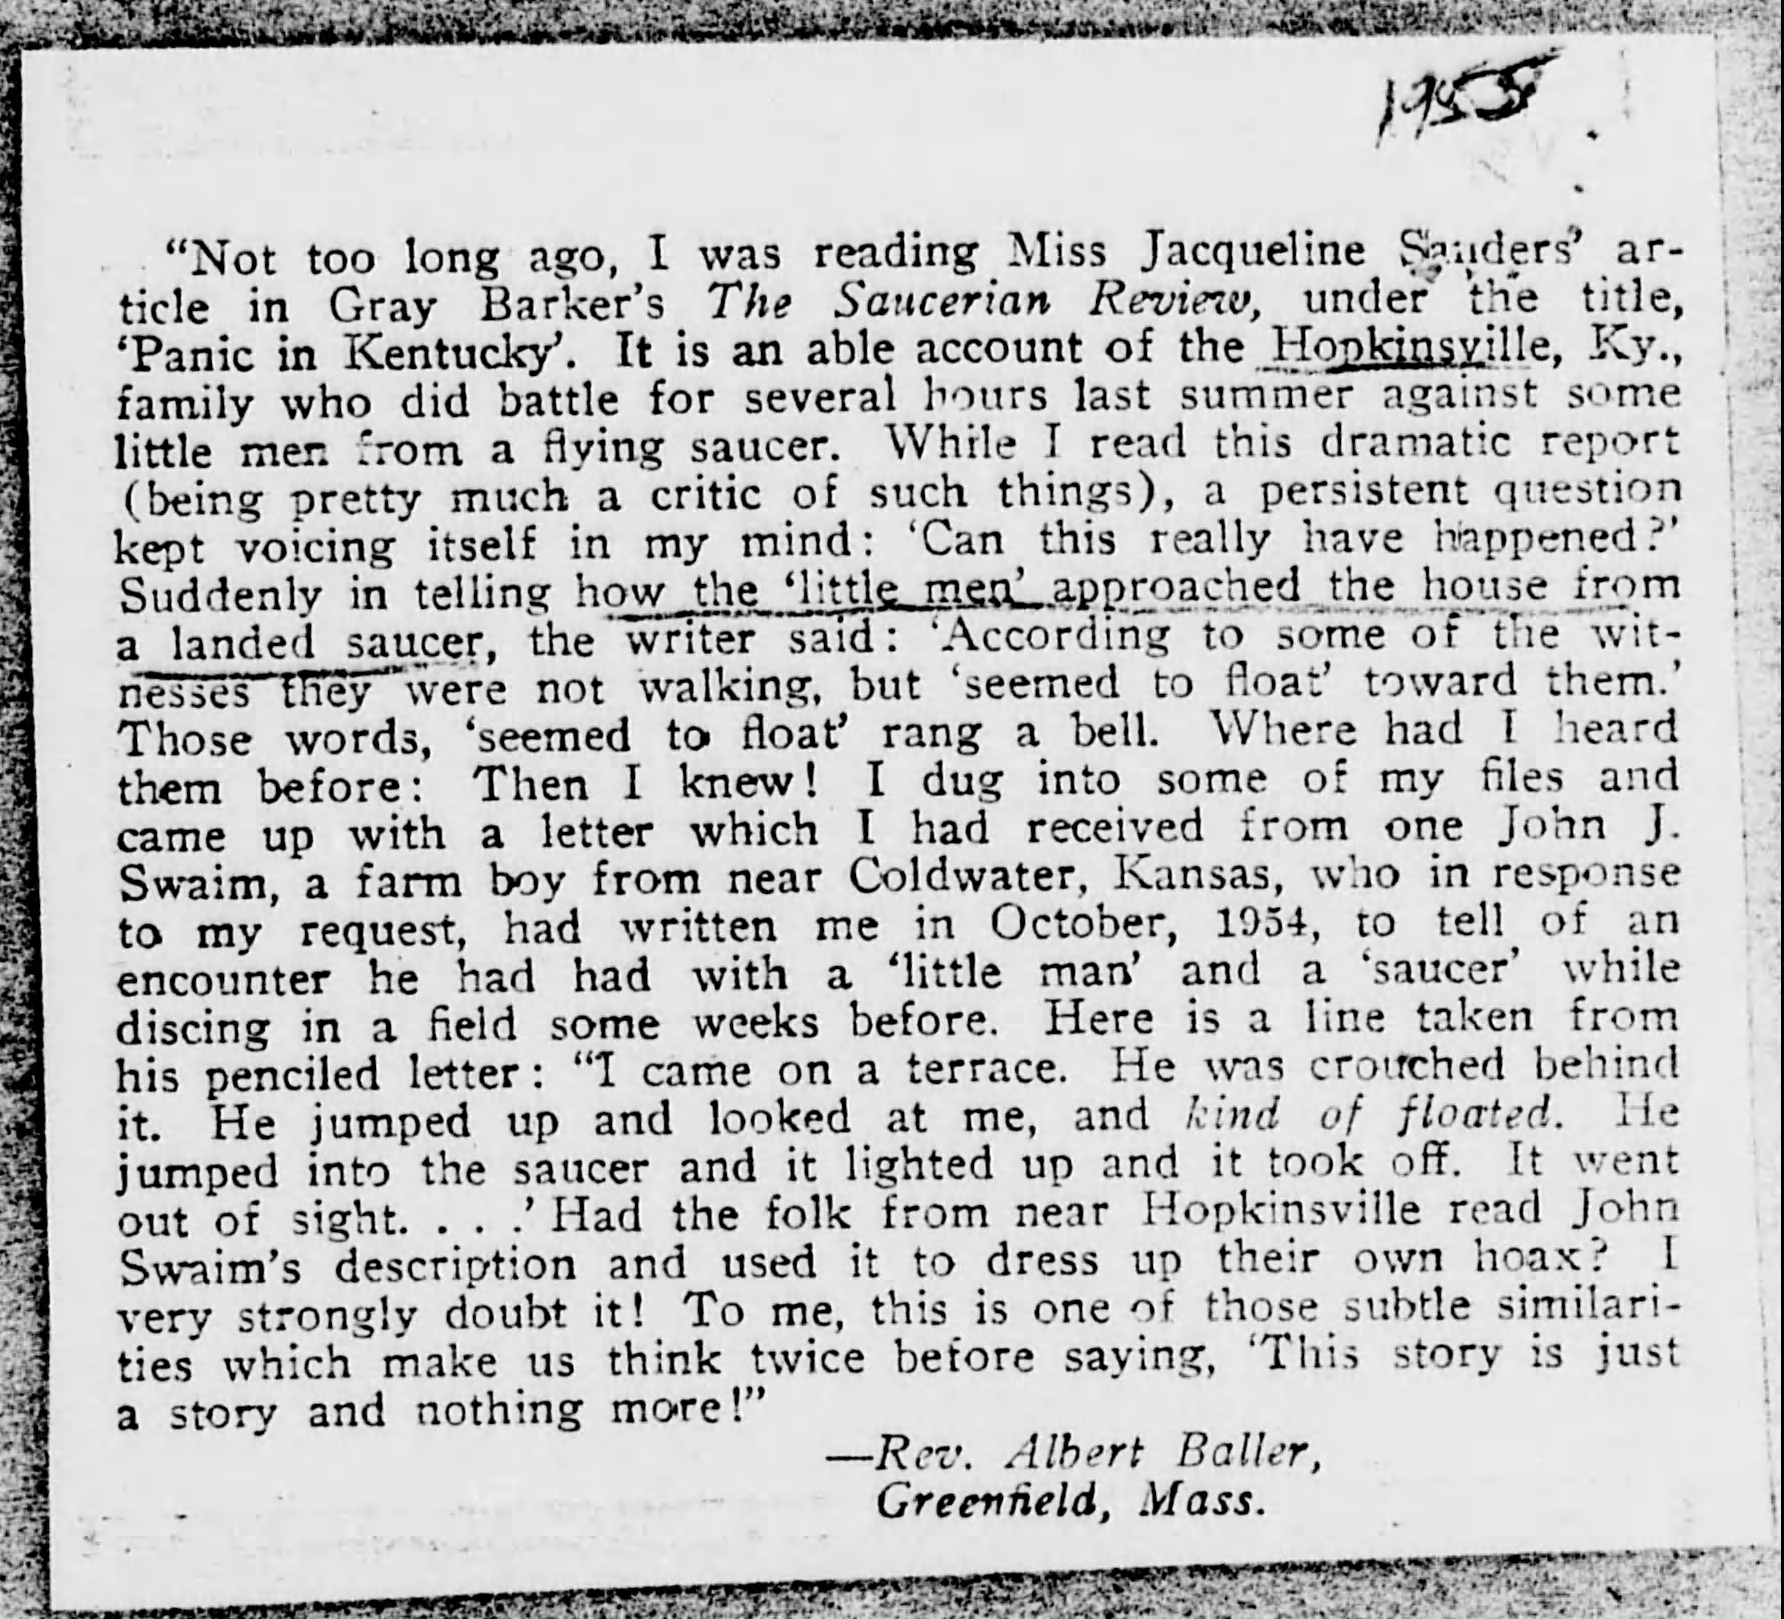 1955
“Not too long ago, I was reading Miss Jacqueline Sanders’ ar-
ticle in Gray Barker’s The Saucerian Review, under the title,
‘Panic in Kentucky’. It is an able account of the Hopkinsville, Ky.,
family who did battle for several hours last summer against some
little men from a flying saucer. While I read this dramatic report
(being pretty much a critic of such things), a persistent question
kept voicing itself in my mind: ‘Can this really have happened?’
Suddenly in telling how the ‘little men’ approached the house from
a landed saucer, the writer said: ‘According to some of the wit-
nesses they were not walking, but ‘seemed to float’ toward them.’
Those words, ‘seemed to float’ rang a bell. Where had I heard
them before: Then I knew! I dug into some of my files and
came up with a letter which I had received from one John J.
Swaim, a farm boy from near Coldwater, Kansas, who in response
to my request, had written me in October, 1954, to tell of an
encounter he had had with a ‘little man’ and a ‘saucer’ while
discing in a field some weeks before. Here is a line taken from
his penciled letter: “I came on a terrace. He was crouched behind
it. He jumped up and looked at me, and kind of floated. He
jumped into the saucer and it lighted up and it took off. It went
out of sight. . . .’ Had the folk from near Hopkinsville read John
Swaim’s description and used it to dress up their own hoax? I
very strongly doubt it! To me, this is one of those subtle similari-
ties which make us think twice before saying, ‘This story is just
a story and nothing more!”
—Rev. Albert Baller,
Greenfield, Mass.